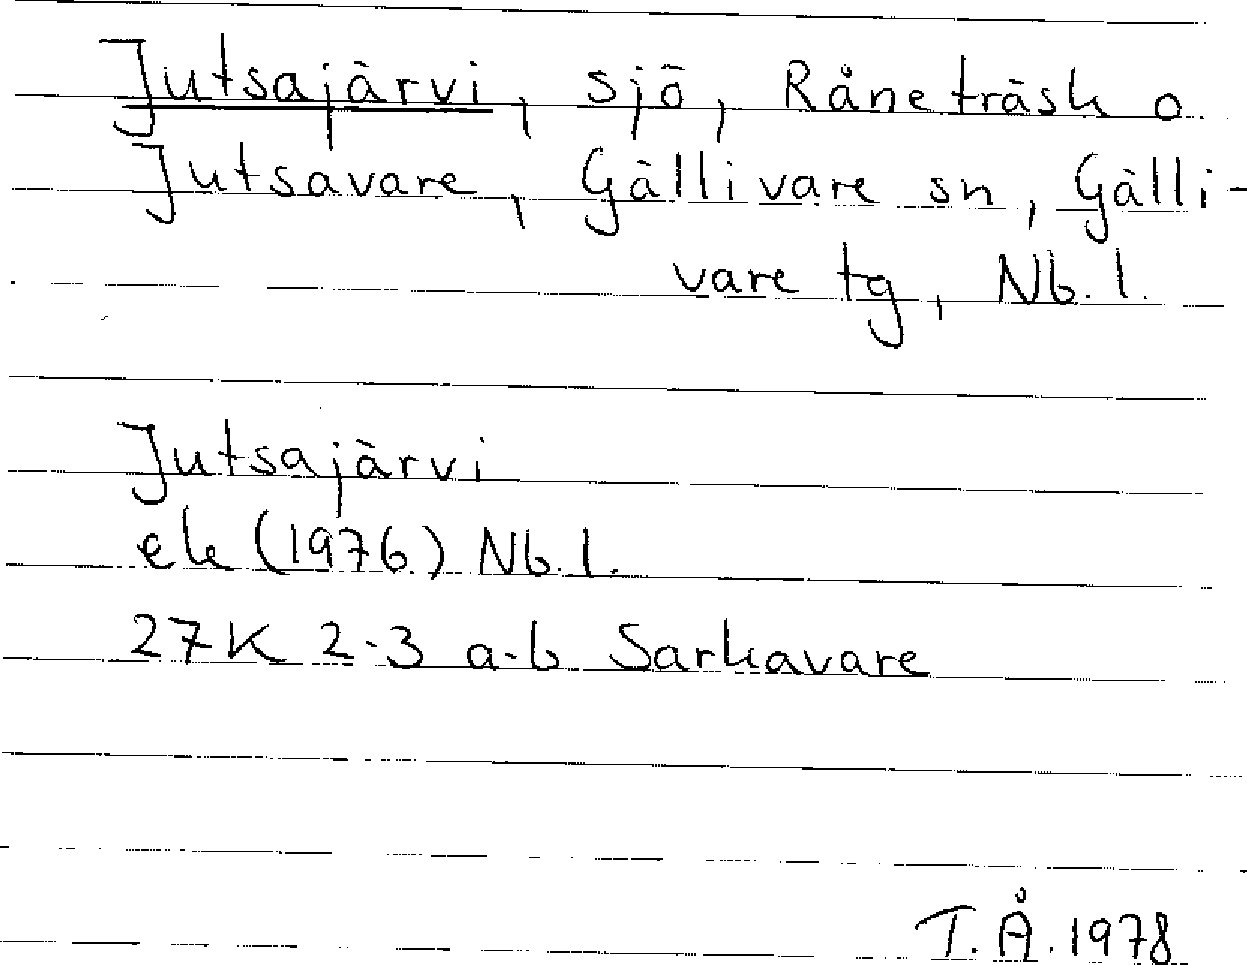 Jutsajärvi, sjö, Råneträsk o
Jutsavare, Gällivare sn, Gälli-
vare tg, Nb. l.
Jutsajärvi
ek (1976) Nb. l.
27K 2-3 a-b Sarkavare
T.Å. 1978